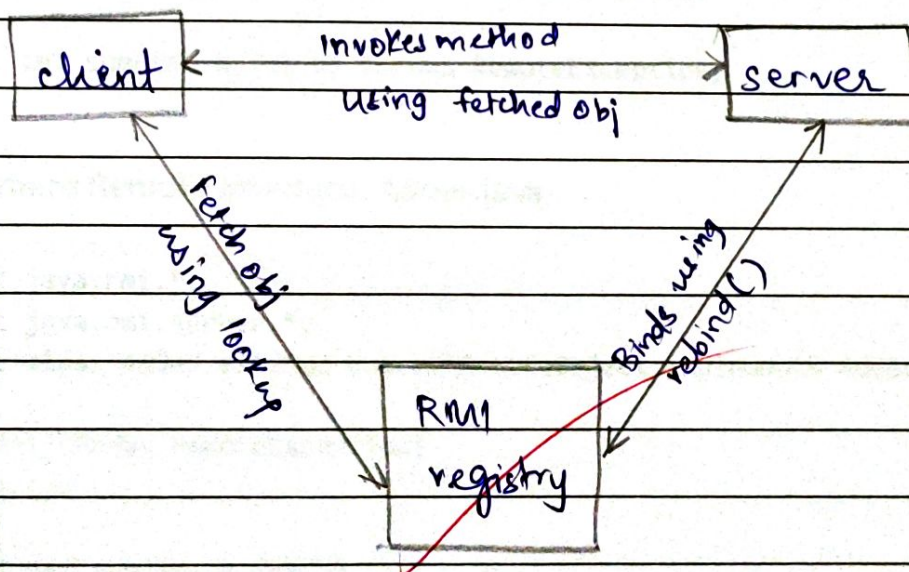 client
invokes method
using fetched obj
server
Fetch obj
using lookup
Binds using
rebind()
RMI
registry